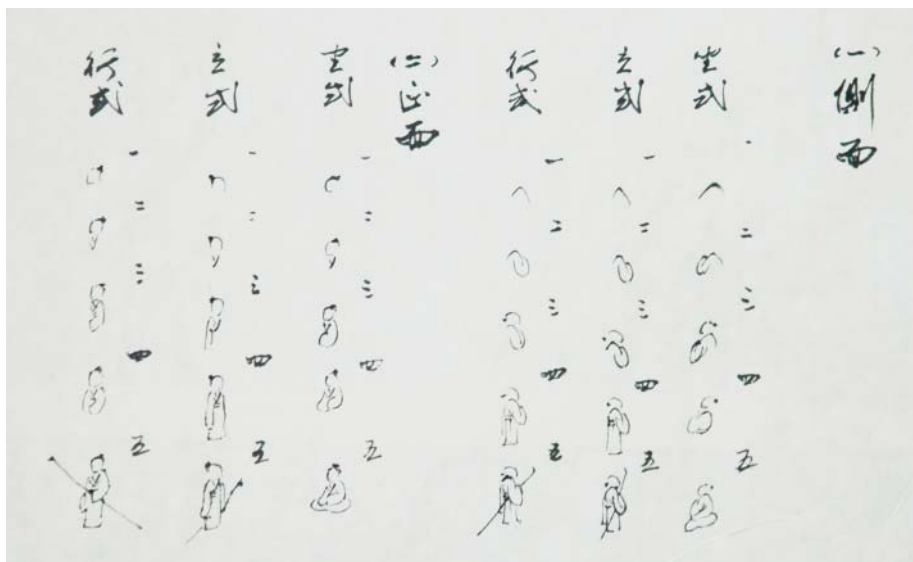 (一)側面
坐式
一
二
三
四
五
立式
一
二
三
四
五
行式
一
二
三
四
五
(二)正面
坐式
一
二
三
四
五
立式
一
二
三
四
五
行式
一
二
三
四
五